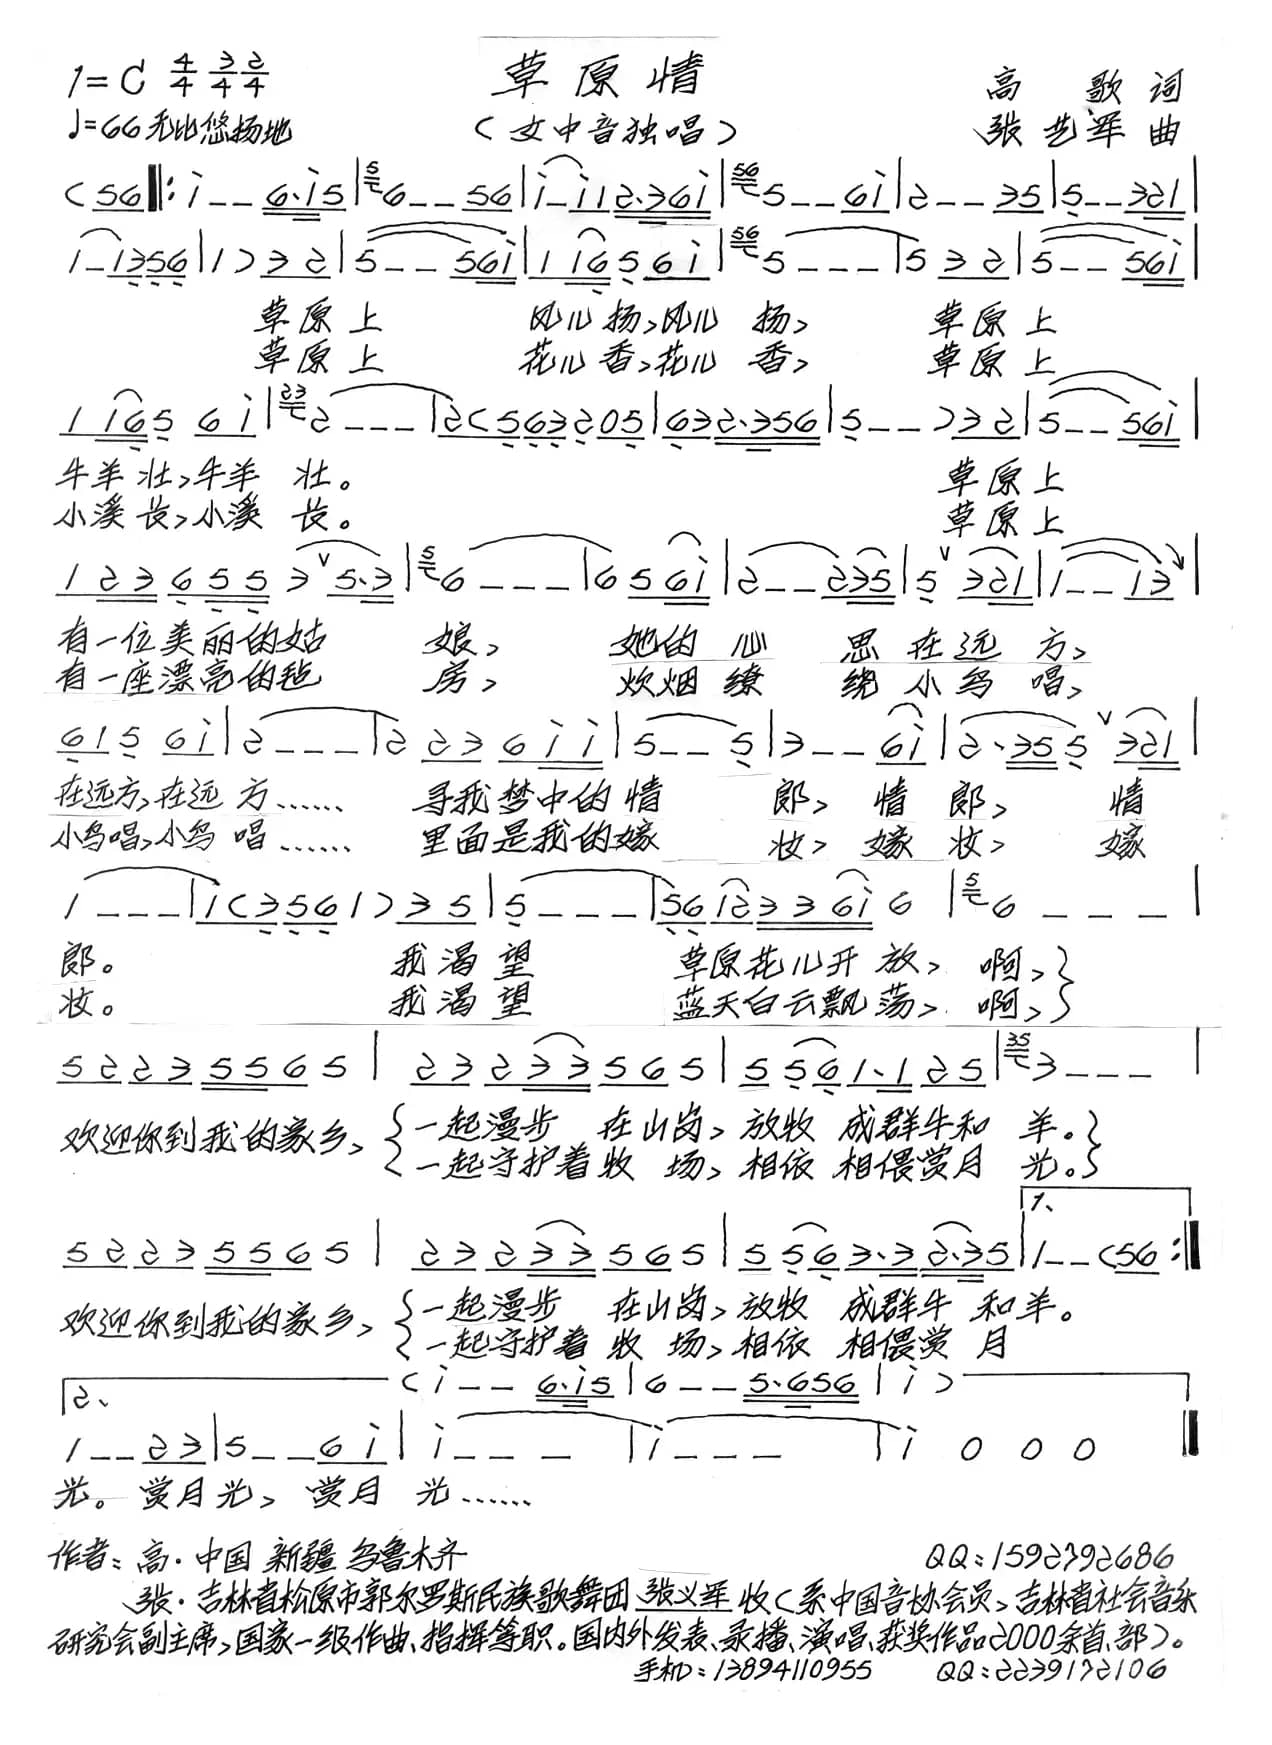 1=C 4/4 3/4 2/4 草原情 高歌词
♩=66 无比悠扬地 (女中音独唱) 张艺军 曲
(56‖: i - - 6·i5 | 6 - - 56 | i - i12·36i | 5 - - 6i | 2 - - 35 | 5 - - 321 |
i - 1356 | 1) 3 2 | 5 - - 56i | 1 i6 5 6 i | 5 - - - | 5 3 2 | 5 - - 56i |
草原上 风儿扬,风儿 扬, 草原上
草原上 花儿香,花儿 香, 草原上
1 i6 5 6 i | 2 - - - | 2(563205 | 632·356 | 5 - - )3 2 | 5 - - 56i |
牛羊壮,牛羊 壮。 草原上
小溪长,小溪 长。 草原上
1 2 3 6 5 5 3 ∨ 5·3 | 6 - - - | 6 5 6i | 2 - - 235 | 5 ∨ 321 | 1 - - 13 |
有一位美丽的姑 娘, 她的 心 思 在 远 方,
有一座漂亮的毡 房, 炊烟 缭 绕 小 鸟 唱,
6 1 5 6i | 2 - - - | 2 2 3 6 i i | 5 - - 5 | 3 - - 6i | 2·35 5 ∨ 321 |
在远方,在远 方…… 寻我梦中的情 郎, 情 郎, 情
小鸟唱,小鸟 唱…… 里面是我的嫁 妆, 嫁 妆, 嫁
1 - - - | i(3561) 3 5 | 5 - - - | 56 i2 3 3 6i 6 | 6 - - - |
郎。 我渴望 草原花儿开 放, 啊,}
妆。 我渴望 蓝天白云飘 荡, 啊,}
5 2 2 3 5 5 6 5 | 2 3 2 3 3 5 6 5 | 5 5 6 1·1 2 5 | 3 - - - |
欢迎你到我的家乡, {一起漫步 在山岗, 放牧 成群牛和 羊。}
{一起守护着牧 场, 相依 相偎赏月 光。}
1、
5 2 2 3 5 5 6 5 | 2 3 2 3 3 5 6 5 | 5 5 6 3·3 2·35 | 1 - - (56 :‖
欢迎你到我的家乡, {一起漫步 在山岗, 放牧 成群牛 和羊。
{一起守护着 牧 场, 相依 相偎赏 月
2、 (i - - 6·i5 | 6 - - 5·656 | i )
1 - - 2 3 | 5 - - 6 i | i - - - | i - - - | i 0 0 0 ‖
光。赏月光, 赏月 光……
作者:高·中国 新疆 乌鲁木齐 QQ:1592792686
张·吉林省松原市郭尔罗斯民族歌舞团 张义军 收(系中国音协会员,吉林省社会音乐
研究会副主席,国家一级作曲、指挥等职。国内外发表、录播、演唱、获奖作品2000余首、部)。
手机:13894110955 QQ:2239172106